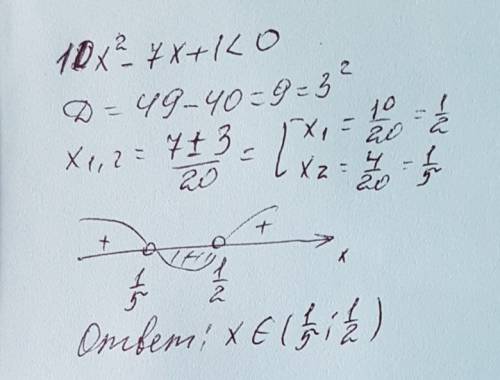 10x² - 7x + 1 < 0
Д = 49 - 40 = 9 = 3²
x₁,₂ = (7 ± 3)/20 = [ x₁ = 10/20 = 1/2
x₂ = 4/20 = 1/5
+ +
x
1/5 1/2
Ответ: x ∈ (1/5 ; 1/2)